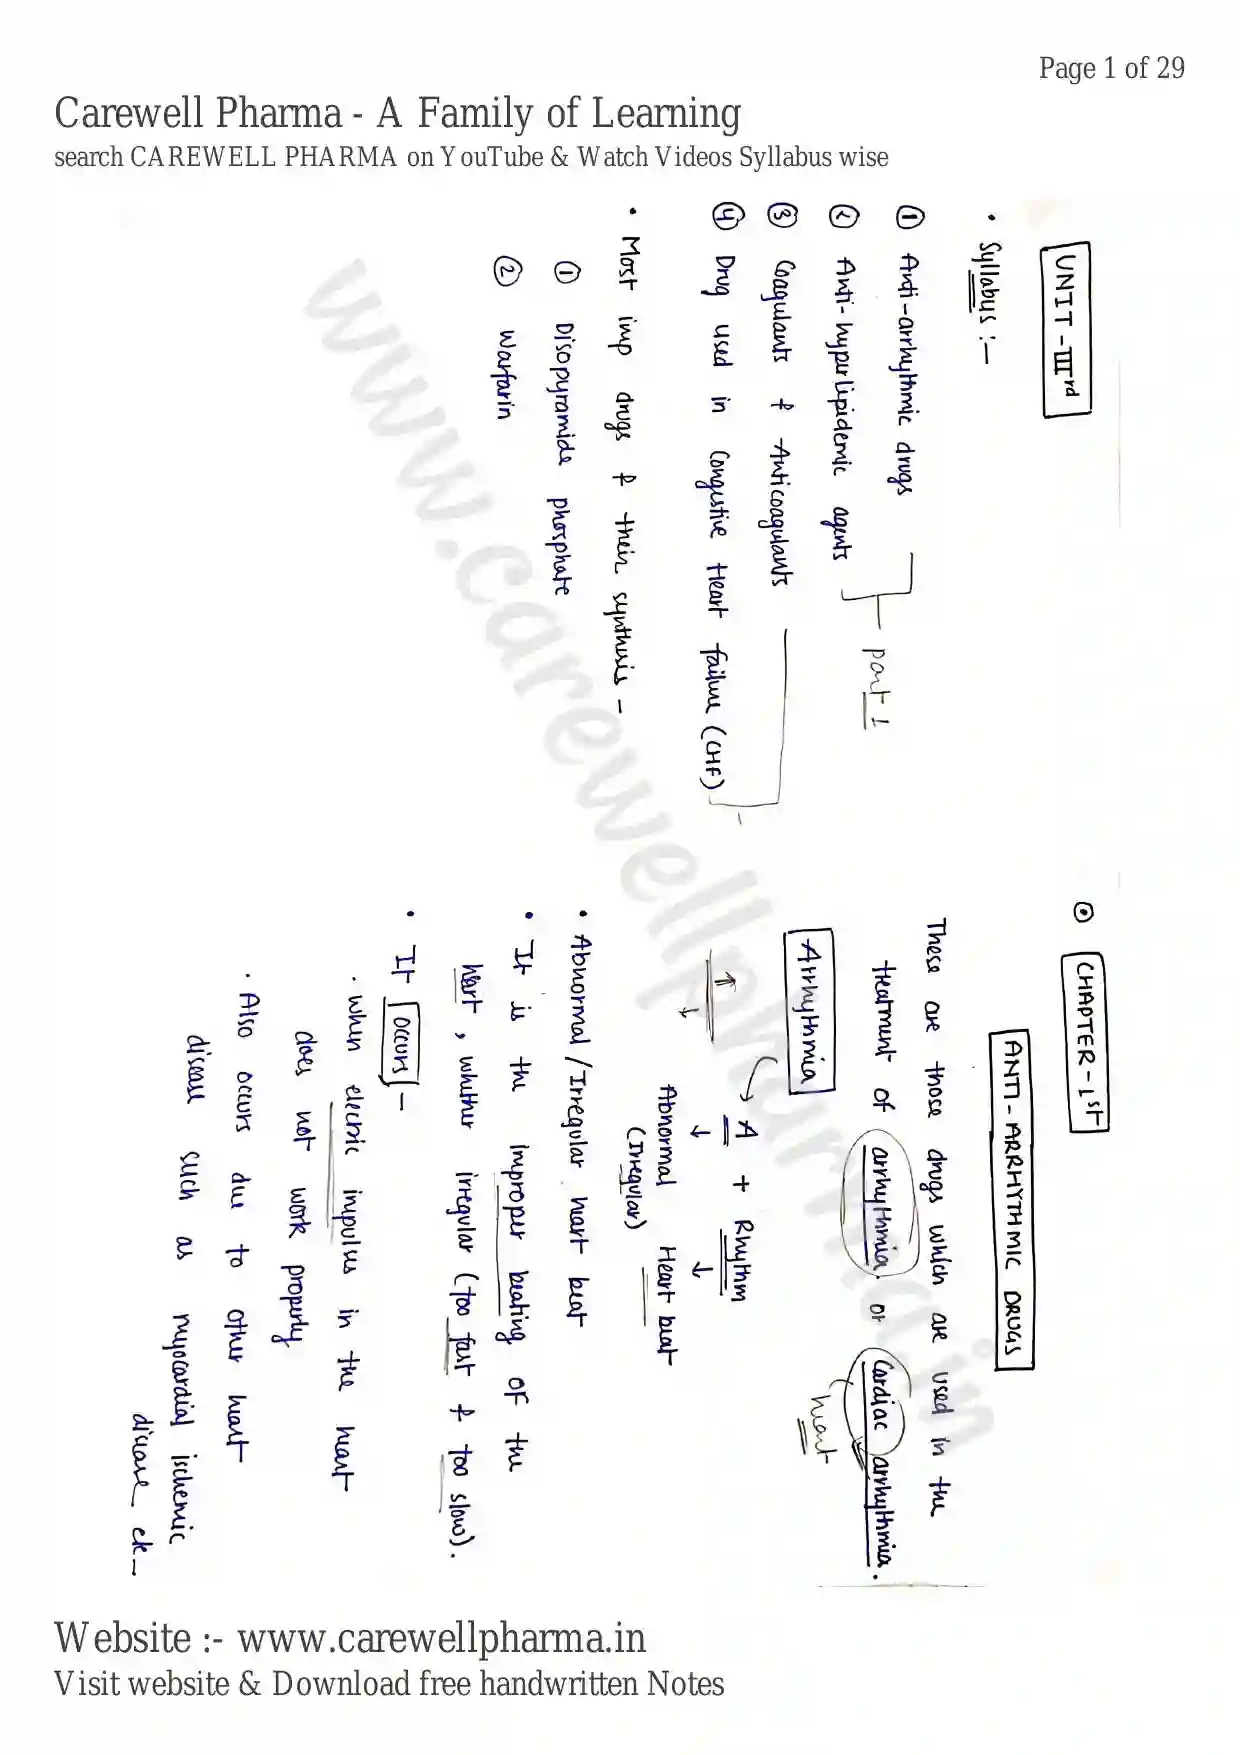 Page 1 of 29
Carewell Pharma - A Family of Learning
search CAREWELL PHARMA on YouTube & Watch Videos Syllabus wise
UNIT-IIIrd
• Syllabus :—
① Anti-arrhythmic drugs
② Anti-hyperlipidemic agents
part 1
③ Coagulants & Anticoagulants
④ Drug used in Congestive Heart failure (CHF)
• Most imp drugs & their synthesis –
① Disopyramide phosphate
② Warfarin
⊙ CHAPTER-1st
ANTI-ARRHYTHMIC DRUGS
These are those drugs which are used in the
treatment of arrhythmia or Cardiac arrhythmia.
heart
Arrhythmia
A + Rhythm
↓ ↓
Abnormal Heart beat
(Irregular)
• Abnormal/Irregular heart beat
• It is the improper beating of the
heart, whether irregular (too fast & too slow).
• It occurs –
· when electric impulus in the heart
does not work properly
· Also occurs due to other heart
disease such as myocardial ischemic
disease etc—
www.carewellpharma.in
Website :- www.carewellpharma.in
Visit website & Download free handwritten Notes